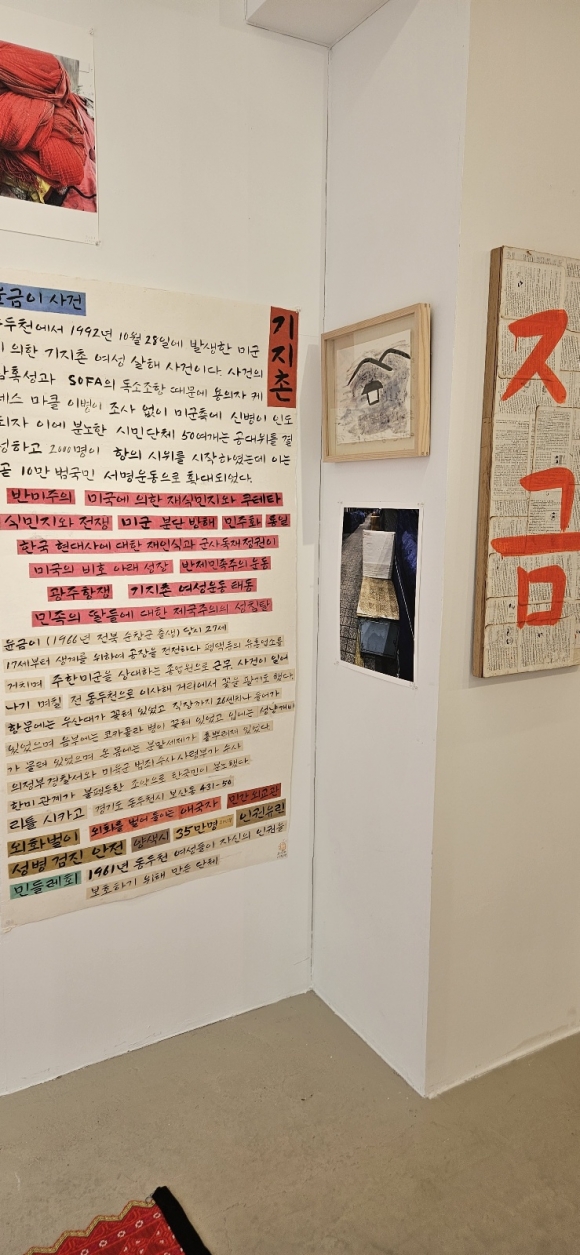 윤금이 사건
기지촌
동두천에서 1992년 10월 28일에 발생한 미군
의한 기지촌 여성 살해 사건이다. 사건의
잔혹성과 SOFA의 독소조항 때문에 용의자 케
네스 마클 이병이 조사 없이 미군측에 신병이 인도
되자 이에 분노한 시민단체 50여개는 공대위를 결
성하고 2000명이 항의 시위를 시작하였는데 이는
곧 10만 범국민 서명운동으로 확대되었다.
반미주의 미국에 의한 재식민지와 쿠테타
식민지와 전쟁 미군 분단 반해 민주화 통일
한국 현대사에 대한 재인식과 군사독재정권이
미국의 비호 아래 성장 반제민족주의 운동
광주항쟁 기지촌 여성운동 태동
민족의 딸들에 대한 제국주의의 성침탈
윤금이 (1966년 전북 순창군 출생) 당시 27세
17세부터 생계를 위하여 공장을 전전하다 평택 유흥업소를
거치며 주한미군을 상대하는 종업원으로 근무. 사건이 일어
나기 며칠 전 동두천으로 이사해 거리에서 꽃을 팔기도 했다.
항문에는 우산대가 꽂혀 있었고 직장까지 26센치나 들어가
있었으며 음부에는 코카콜라 병이 꽂혀 있었고 입에는 성냥개비
가 물려 있었으며 온 몸에는 분말세제가 흩뿌려져 있었다
의정부경찰서와 미육군 범죄수사사령부가 수사
한미관계가 불평등한 조약으로 한국민이 분노했다.
리틀 시카고 경기도 동두천시 보산동 431-50
외화벌이 외화를 벌어 들이는 애국자 민간 외교관
성병 검진 안전 양색시 35만명 인권유린
민들레회 1961년 동두천 여성들이 자신의 인권을
보호하기 위해 만든 단체
지금